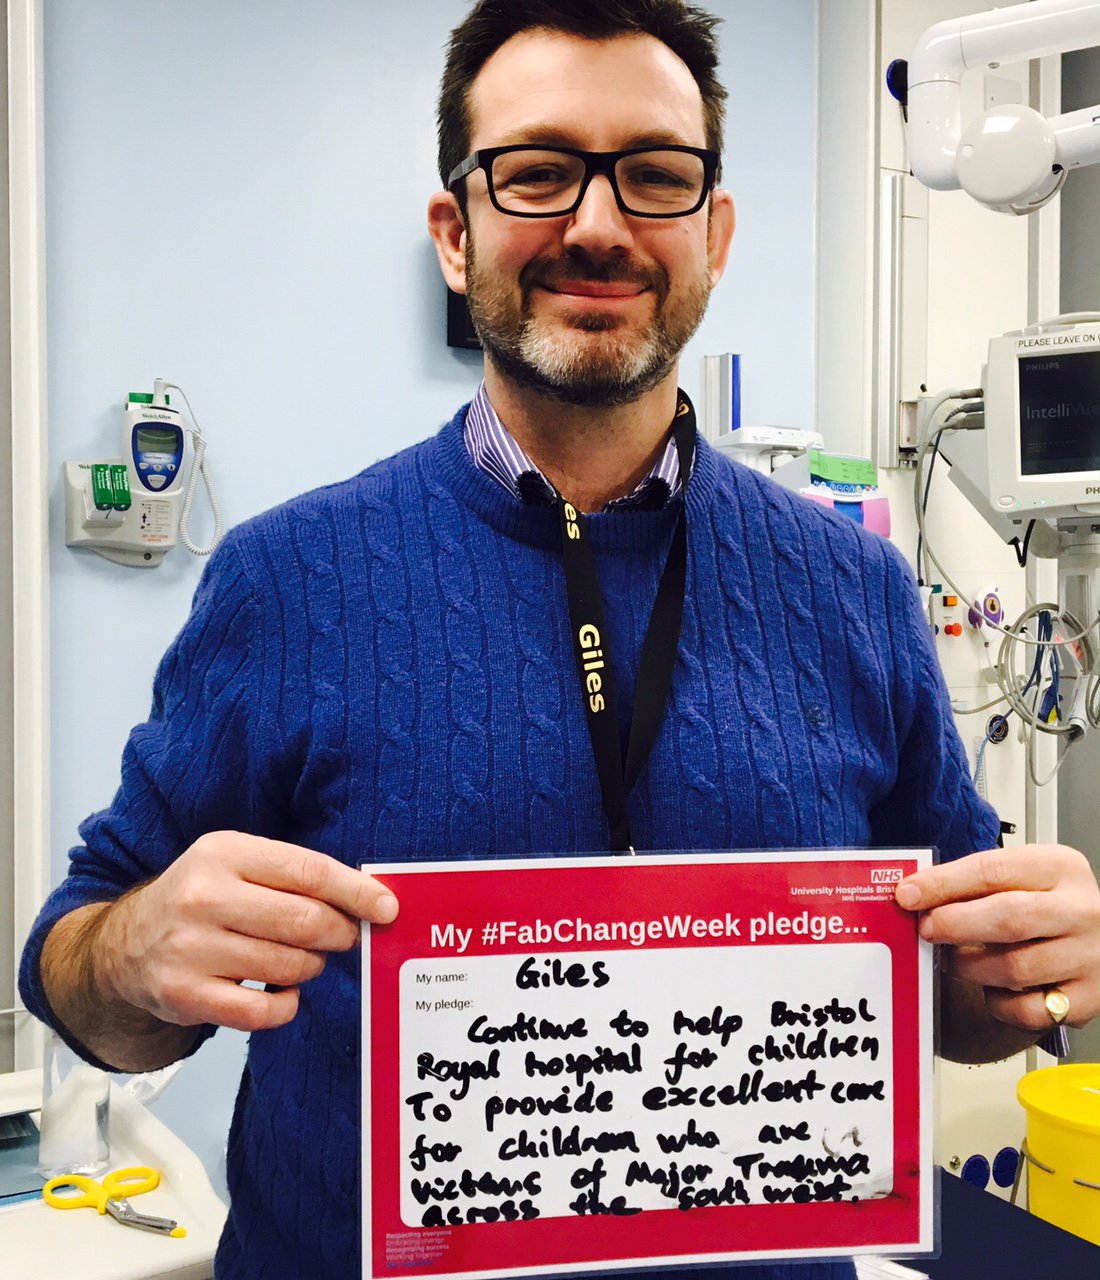 WelchAllyn
PLEASE LEAVE ON
PHILIPS
IntelliVue
PH
es
Giles
NHS
University Hospitals Brist
NHS Foundation T
My #FabChangeWeek pledge...
My name: Giles
My pledge:
Continue to help Bristol
Royal hospital for children
To provide excellent care
for children who are
victims of Major Trauma
across the south west.
Respecting everyone
Embracing change
Recognising success
Working together